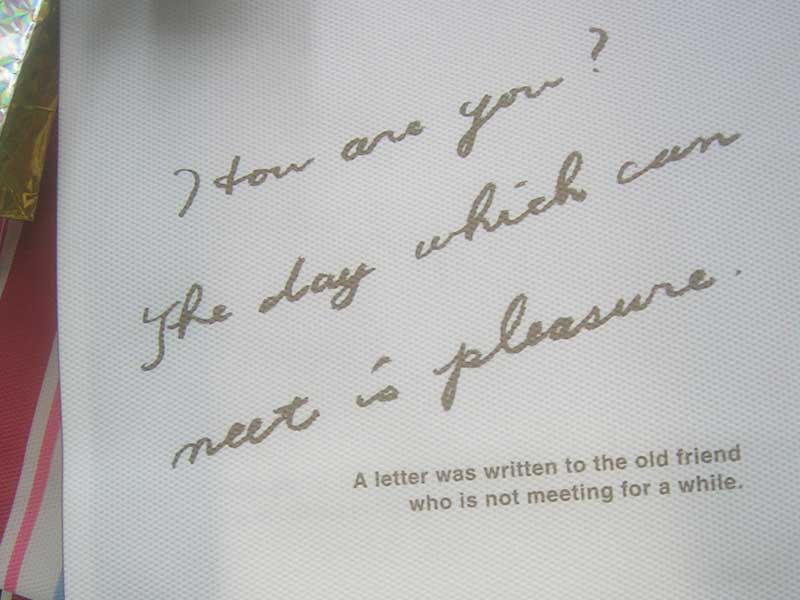 How are you?
The day which can
meet is pleasure.
A letter was written to the old friend
who is not meeting for a while.